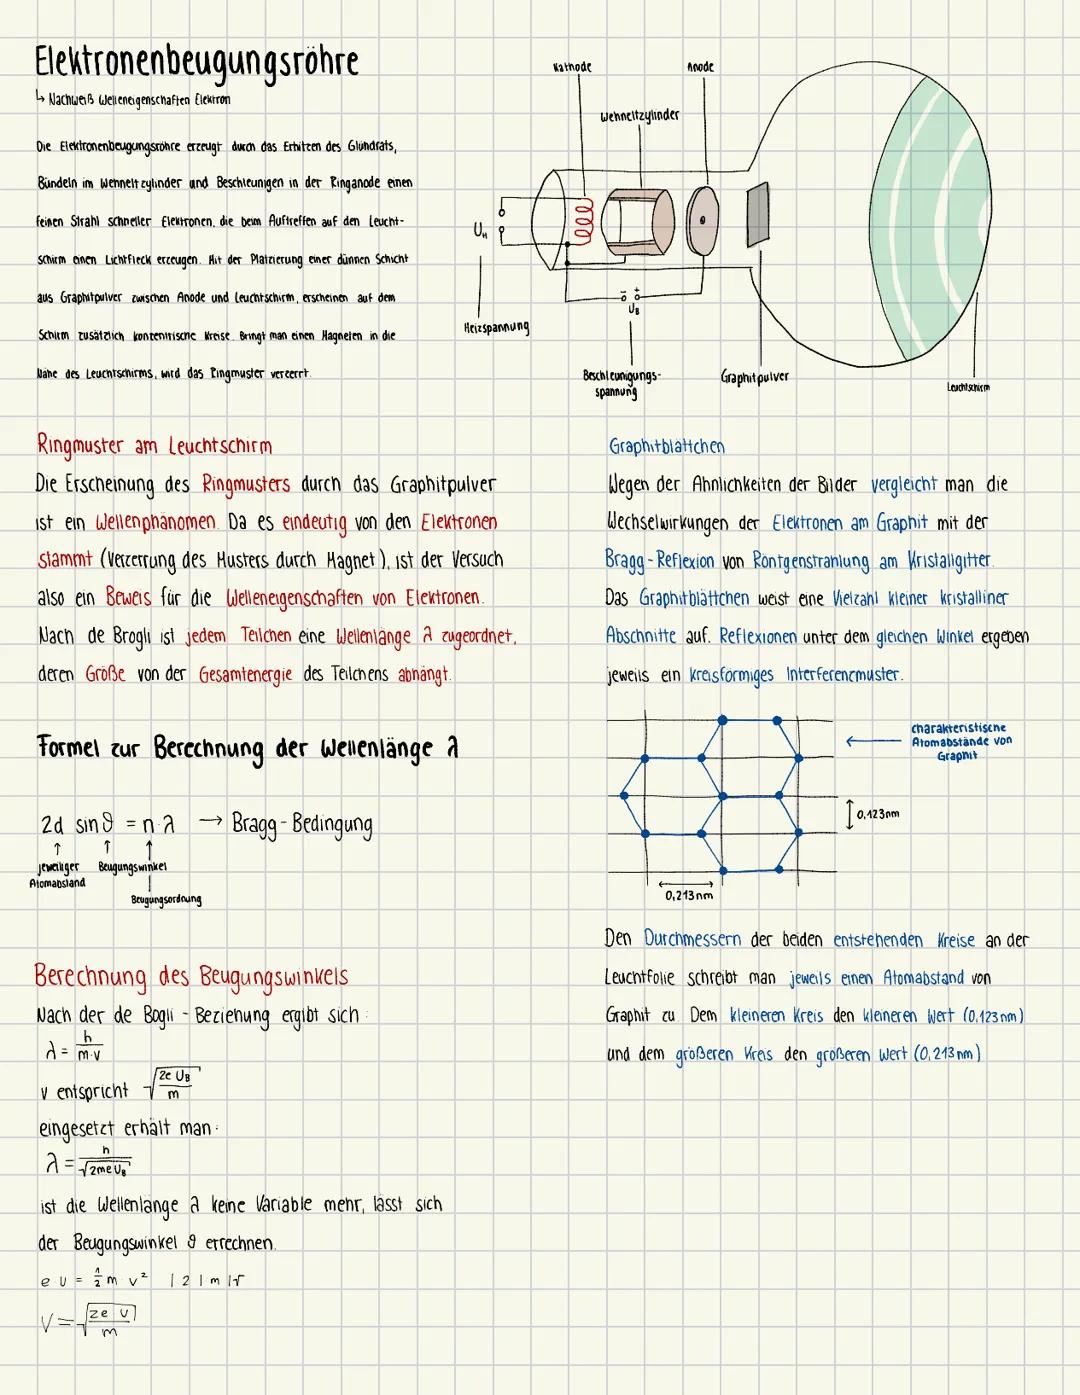 Elektronenbeugungsröhre
↳ Nachweiß Welleneigenschaften Elektron
Die Elektronenbeugungsröhre erzeugt durch das Erhitzen des Glühdrats,
Bündeln im Wehneltzylinder und Beschleunigen in der Ringanode einen
feinen Strahl schneller Elektronen, die beim Auftreffen auf den Leucht-
schirm einen Lichtfleck erzeugen. Mit der Platzierung einer dünnen Schicht
aus Graphitpulver zwischen Anode und Leuchtschirm, erscheinen auf dem
Schirm zusätzlich konzentrische Kreise. Bringt man einen Magneten in die
Nähe des Leuchtschirms, wird das Ringmuster verzerrt.
Kathode
Anode
Wehneltzylinder
U_H
- +
U_B
Heizspannung
Beschleunigungs-
spannung
Graphitpulver
Leuchtschirm
Ringmuster am Leuchtschirm
Die Erscheinung des Ringmusters durch das Graphitpulver
ist ein Wellenphänomen. Da es eindeutig von den Elektronen
stammt (Verzerrung des Musters durch Magnet), ist der Versuch
also ein Beweis für die Welleneigenschaften von Elektronen.
Nach de Brogli ist jedem Teilchen eine Wellenlänge λ zugeordnet,
deren Größe von der Gesamtenergie des Teilchens abhängt.
Formel zur Berechnung der Wellenlänge λ
2d sinϑ = n·λ → Bragg-Bedingung
↑ ↑ ↑
jeweiliger Beugungswinkel
Atomabstand
Beugungsordnung
Berechnung des Beugungswinkels
Nach der de Bogli - Beziehung ergibt sich:
λ = h/(m·v)
v entspricht √(2e U_B/m)
eingesetzt erhält man:
λ = h/√(2meU_B)
ist die Wellenlänge λ keine Variable mehr, lässt sich
der Beugungswinkel ϑ errechnen.
e U = 1/2 m v² | 2 | m |√
V = √(2e U/m)
Graphitblättchen
Wegen der Ähnlichkeiten der Bilder vergleicht man die
Wechselwirkungen der Elektronen am Graphit mit der
Bragg-Reflexion von Röntgenstrahlung am Kristallgitter.
Das Graphitblättchen weist eine Vielzahl kleiner kristalliner
Abschnitte auf. Reflexionen unter dem gleichen Winkel ergeben
jeweils ein kreisförmiges Interferenzmuster.
charakteristische
Atomabstände von
Graphit
0,123nm
0,213nm
Den Durchmessern der beiden entstehenden Kreise an der
Leuchtfolie schreibt man jeweils einen Atomabstand von
Graphit zu. Dem kleineren Kreis den kleineren Wert (0,123nm)
und dem größeren Kreis den größeren Wert (0,213nm)